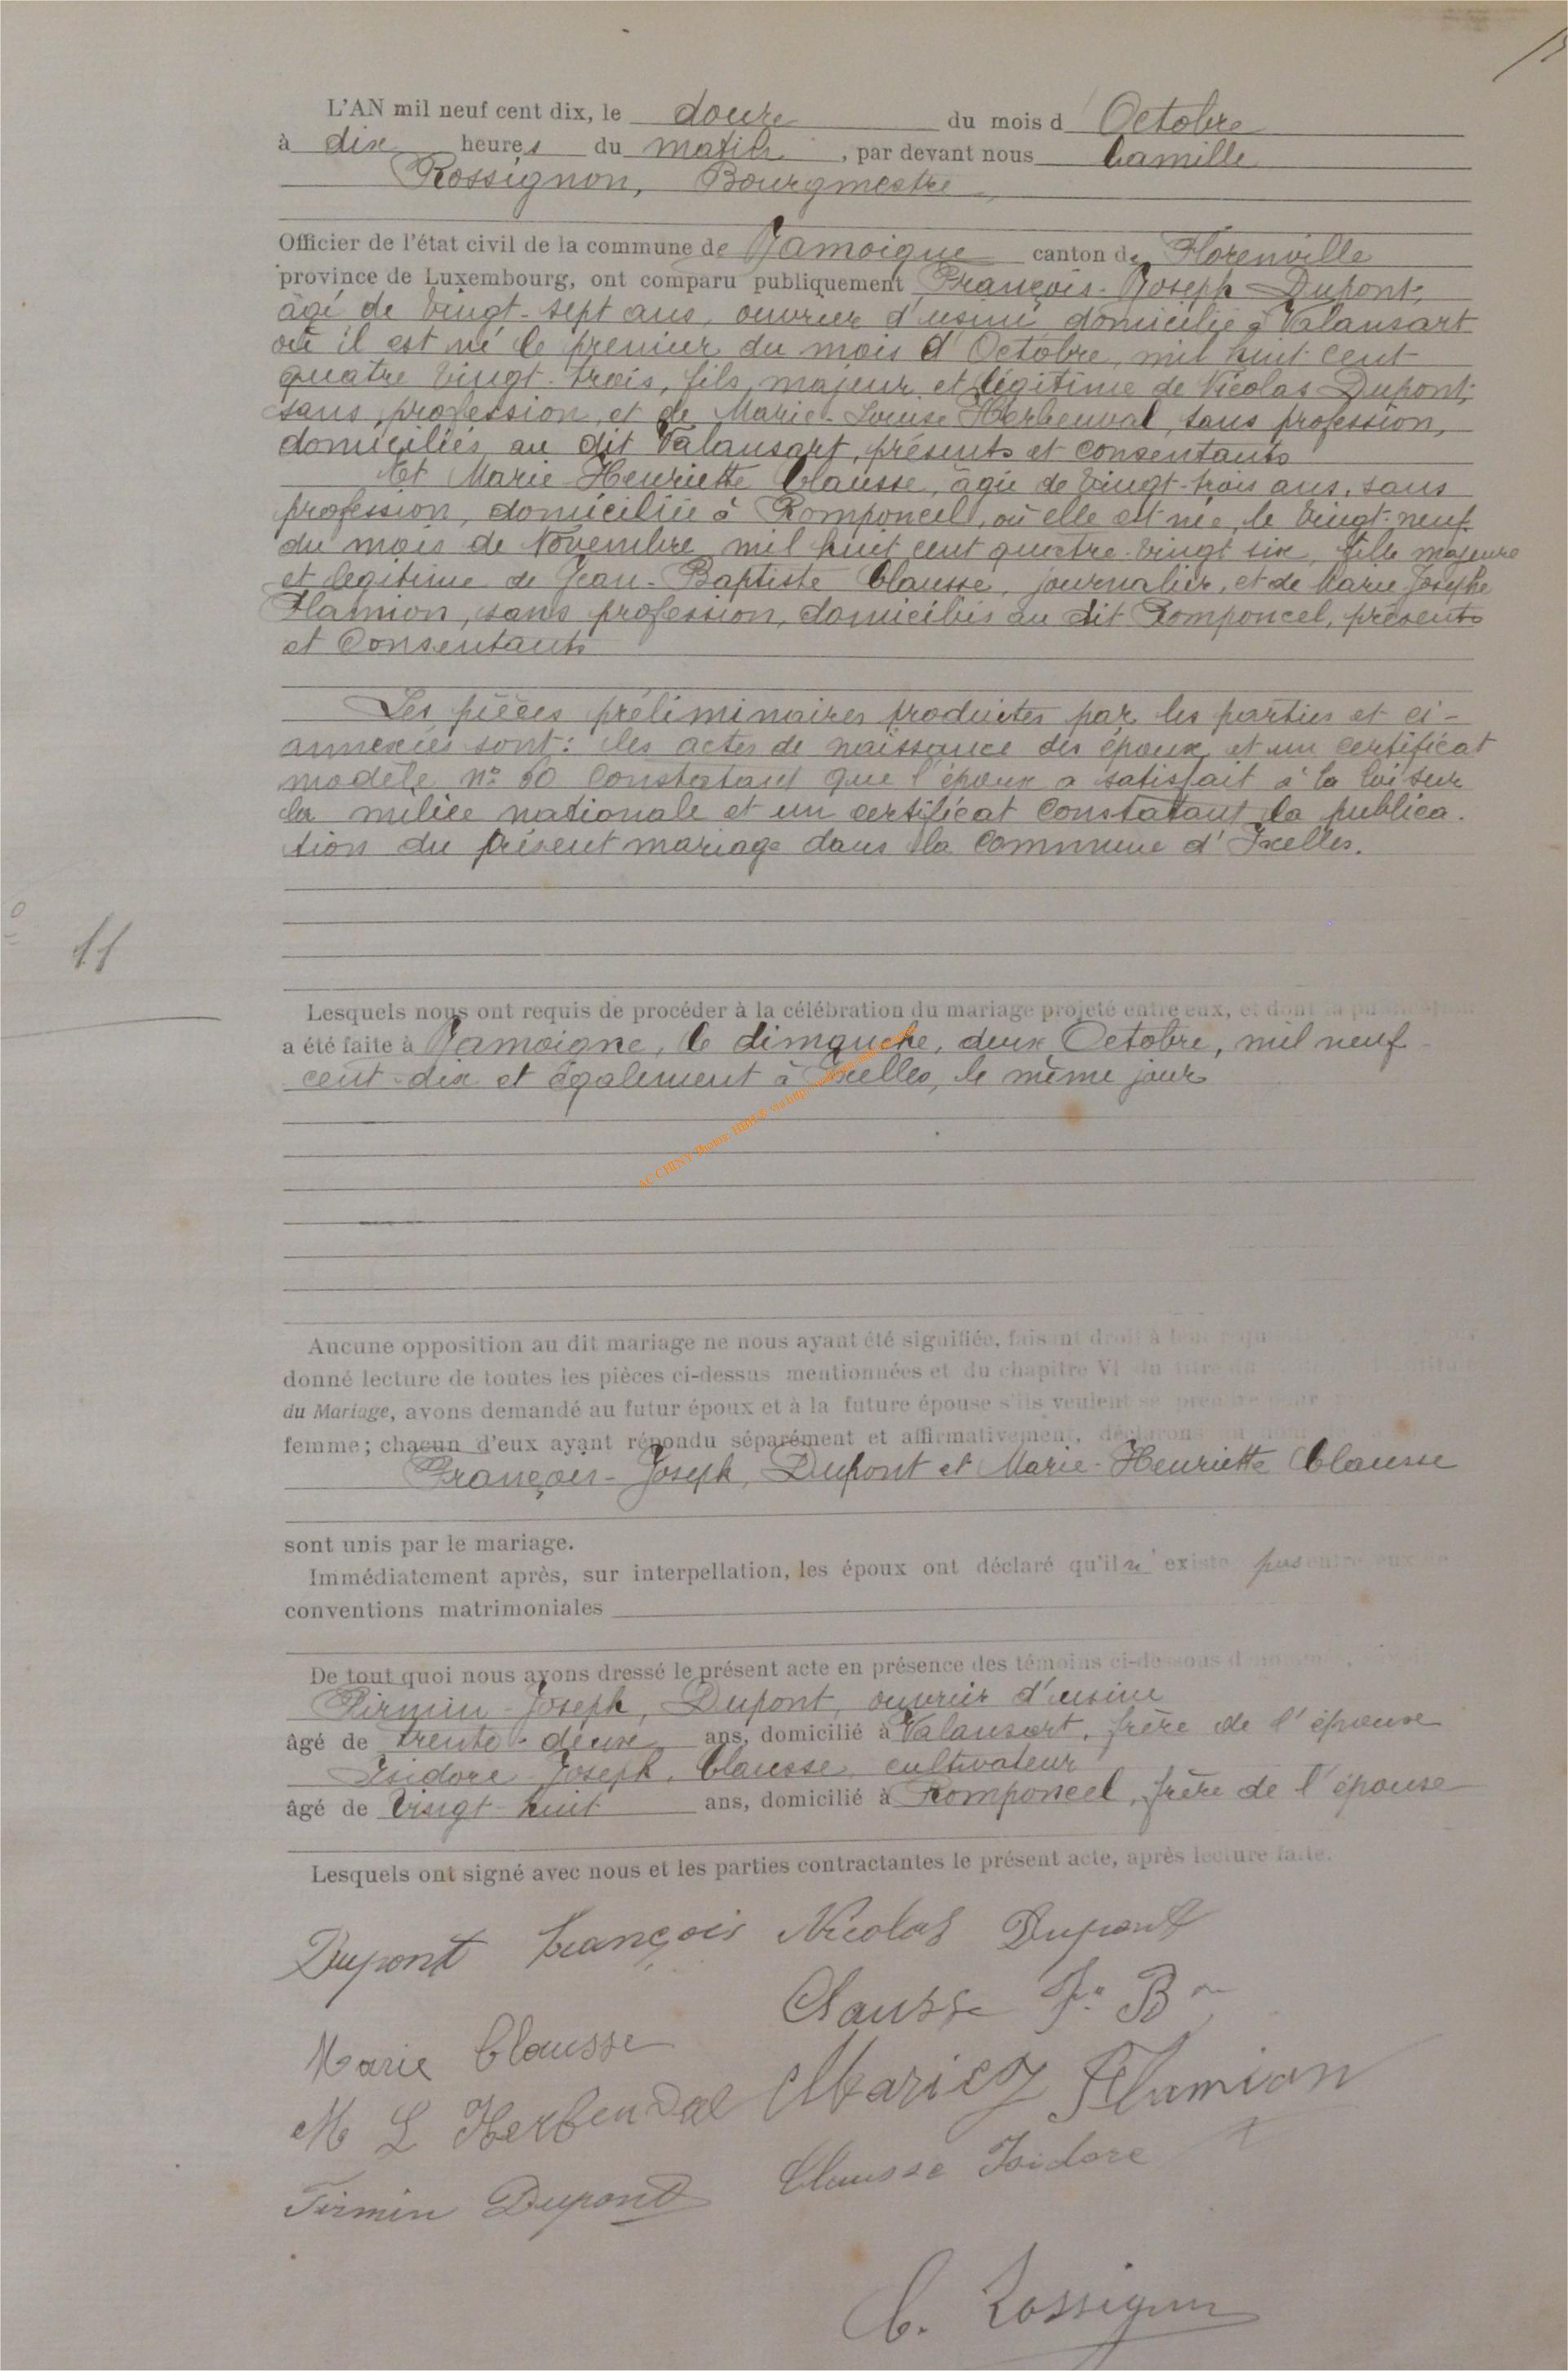 L'AN mil neuf cent dix, le douze du mois d Octobre
à dix heures du matin, par devant nous Camille
Rossignon, Bourgmestre
Officier de l'état civil de la commune de Jamoigne canton de Florenville
province de Luxembourg, ont comparu publiquement François-Joseph Dupont,
âgé de vingt-sept ans, ouvrier d'usine domicilié à Valansart
où il est né le premier du mois d'Octobre, mil huit cent
quatre vingt-trois, fils majeur et légitime de Nicolas Dupont,
sans profession, et de Marie-Louise Herbeuval, sans profession,
domiciliés au dit Valansart, présents et consentants
Et Marie Henriette Clausse, âgée de vingt-trois ans, sans
profession, domiciliée à Romponcel, où elle est née, le vingt-neuf
du mois de Novembre mil huit cent quatre-vingt six, fille majeure
et légitime de Jean-Baptiste Clausse, journalier, et de Marie Josèphe
Flamion, sans profession, domiciliés au dit Romponcel, présents
et consentants
Les pièces préliminaires produites par les parties et ci-
annexées sont: les actes de naissance des époux et un certificat
modèle n° 50 constatant que l'époux a satisfait à la loi sur
la milice nationale et un certificat constatant la publica.
tion du présent mariage dans la commune d'Ixelles.
11
Lesquels nous ont requis de procéder à la célébration du mariage projeté entre eux, et dont la publication
a été faite à Jamoigne, le dimanche, deux Octobre, mil neuf
cent-dix et également à Ixelles, le même jour
AC CHINY
Aucune opposition au dit mariage ne nous ayant été signifiée, faisant droit à leur
donné lecture de toutes les pièces ci-dessus mentionnées et du chapitre VI du titre du
du Mariage, avons demandé au futur époux et à la future épouse s'ils veulent se prendre pour
femme; chacun d'eux ayant répondu séparément et affirmativement, déclarons au nom de la
François-Joseph, Dupont et Marie-Henriette Clausse
sont unis par le mariage.
Immédiatement après, sur interpellation, les époux ont déclaré qu'il n'existe pas entre eux de
conventions matrimoniales
De tout quoi nous avons dressé le présent acte en présence des témoins ci-dessous dénommés,
Firmin-Joseph, Dupont, ouvrier d'usine
âgé de trente-deux ans, domicilié à Valansart, frère de l'époux
Isidore Joseph, Clausse, cultivateur
âgé de vingt-huit ans, domicilié à Romponcel, frère de l'épouse
Lesquels ont signé avec nous et les parties contractantes le présent acte, après lecture faite.
Dupont François Nicolas Dupont
Clausse J. B
Marie Clausse
M L Herbeuval Marie J Flamion
Firmin Dupont Clausse Isidore
C. Rossignon